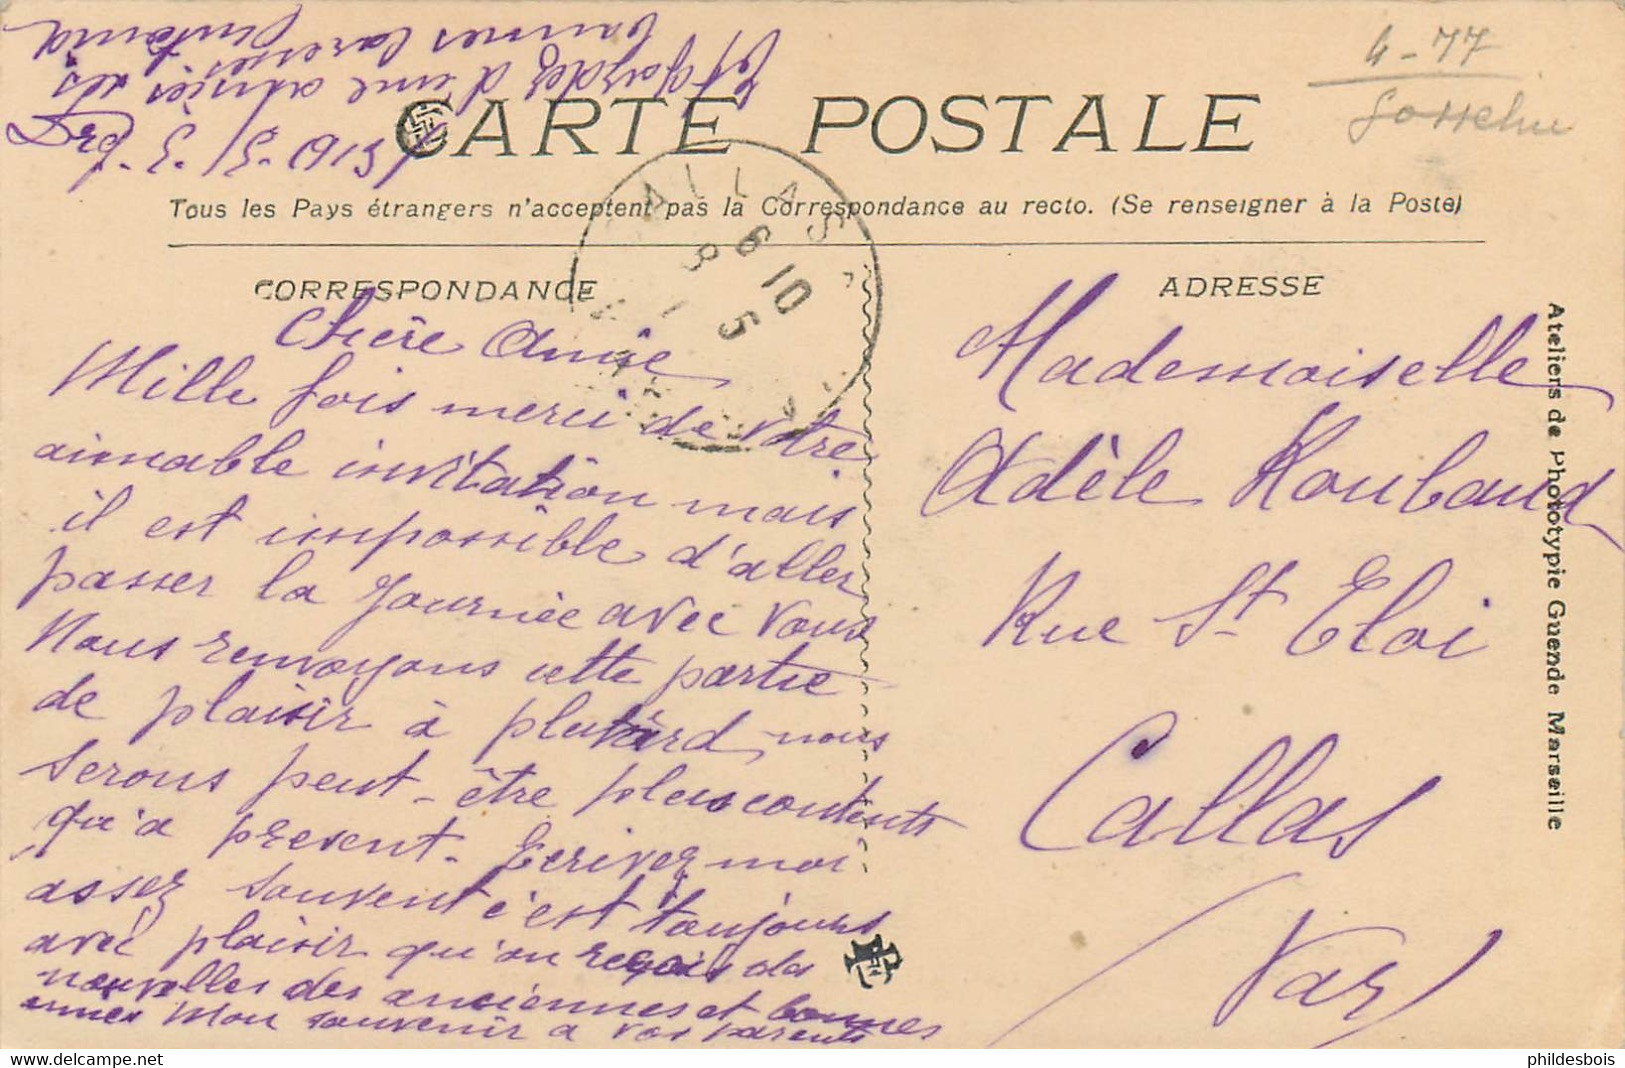 4-77
Gosselin
Et gardez d'une amie les
bonnes caresses
Antonia
Drag. 5/5-1915
CARTE POSTALE
Tous les Pays étrangers n'acceptent pas la Correspondance au recto. (Se renseigner à la Poste)
CALLAS
6 10
8 5
CORRESPONDANCE
Chère Amie
Mille fois merci de votre
aimable invitation mais
il est impossible d'aller
passer la journée avec vous
Nous renvoyons cette partie
de plaisir à plutard nous
serons peut-être plus contents
qu'a present. Ecrivez moi
assez souvent c'est toujours
avec plaisir qu'on reçois da
nouvelles des anciennes et bonnes
amies Mon souvenir a vos parents
ADRESSE
Mademoiselle
Adèle Roubaud
Rue St Eloi
Callas
Var
Ateliers de Phototypie Guende Marseille
phildesbois